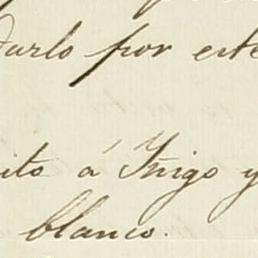 darlo por este
ito á Yñigo y
blanco.